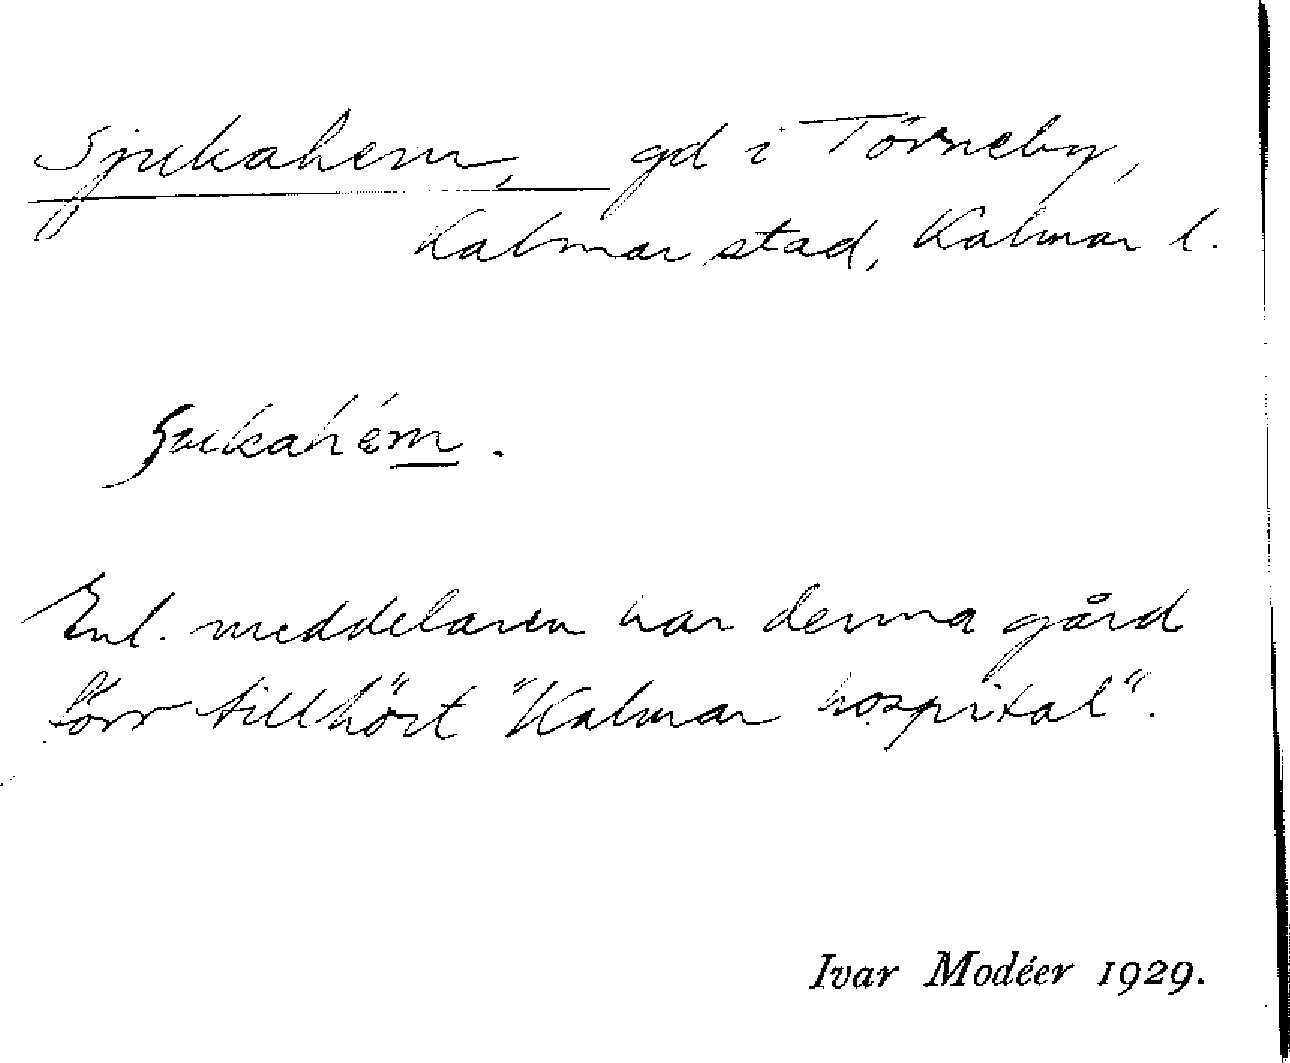 Sjukahem, gd i Törneby,
Kalmar stad, Kalmar l.
ʃukahém.
Enl. meddelaren har denna gård
förr tillhört "Kalmar hospital".
Ivar Modéer 1929.